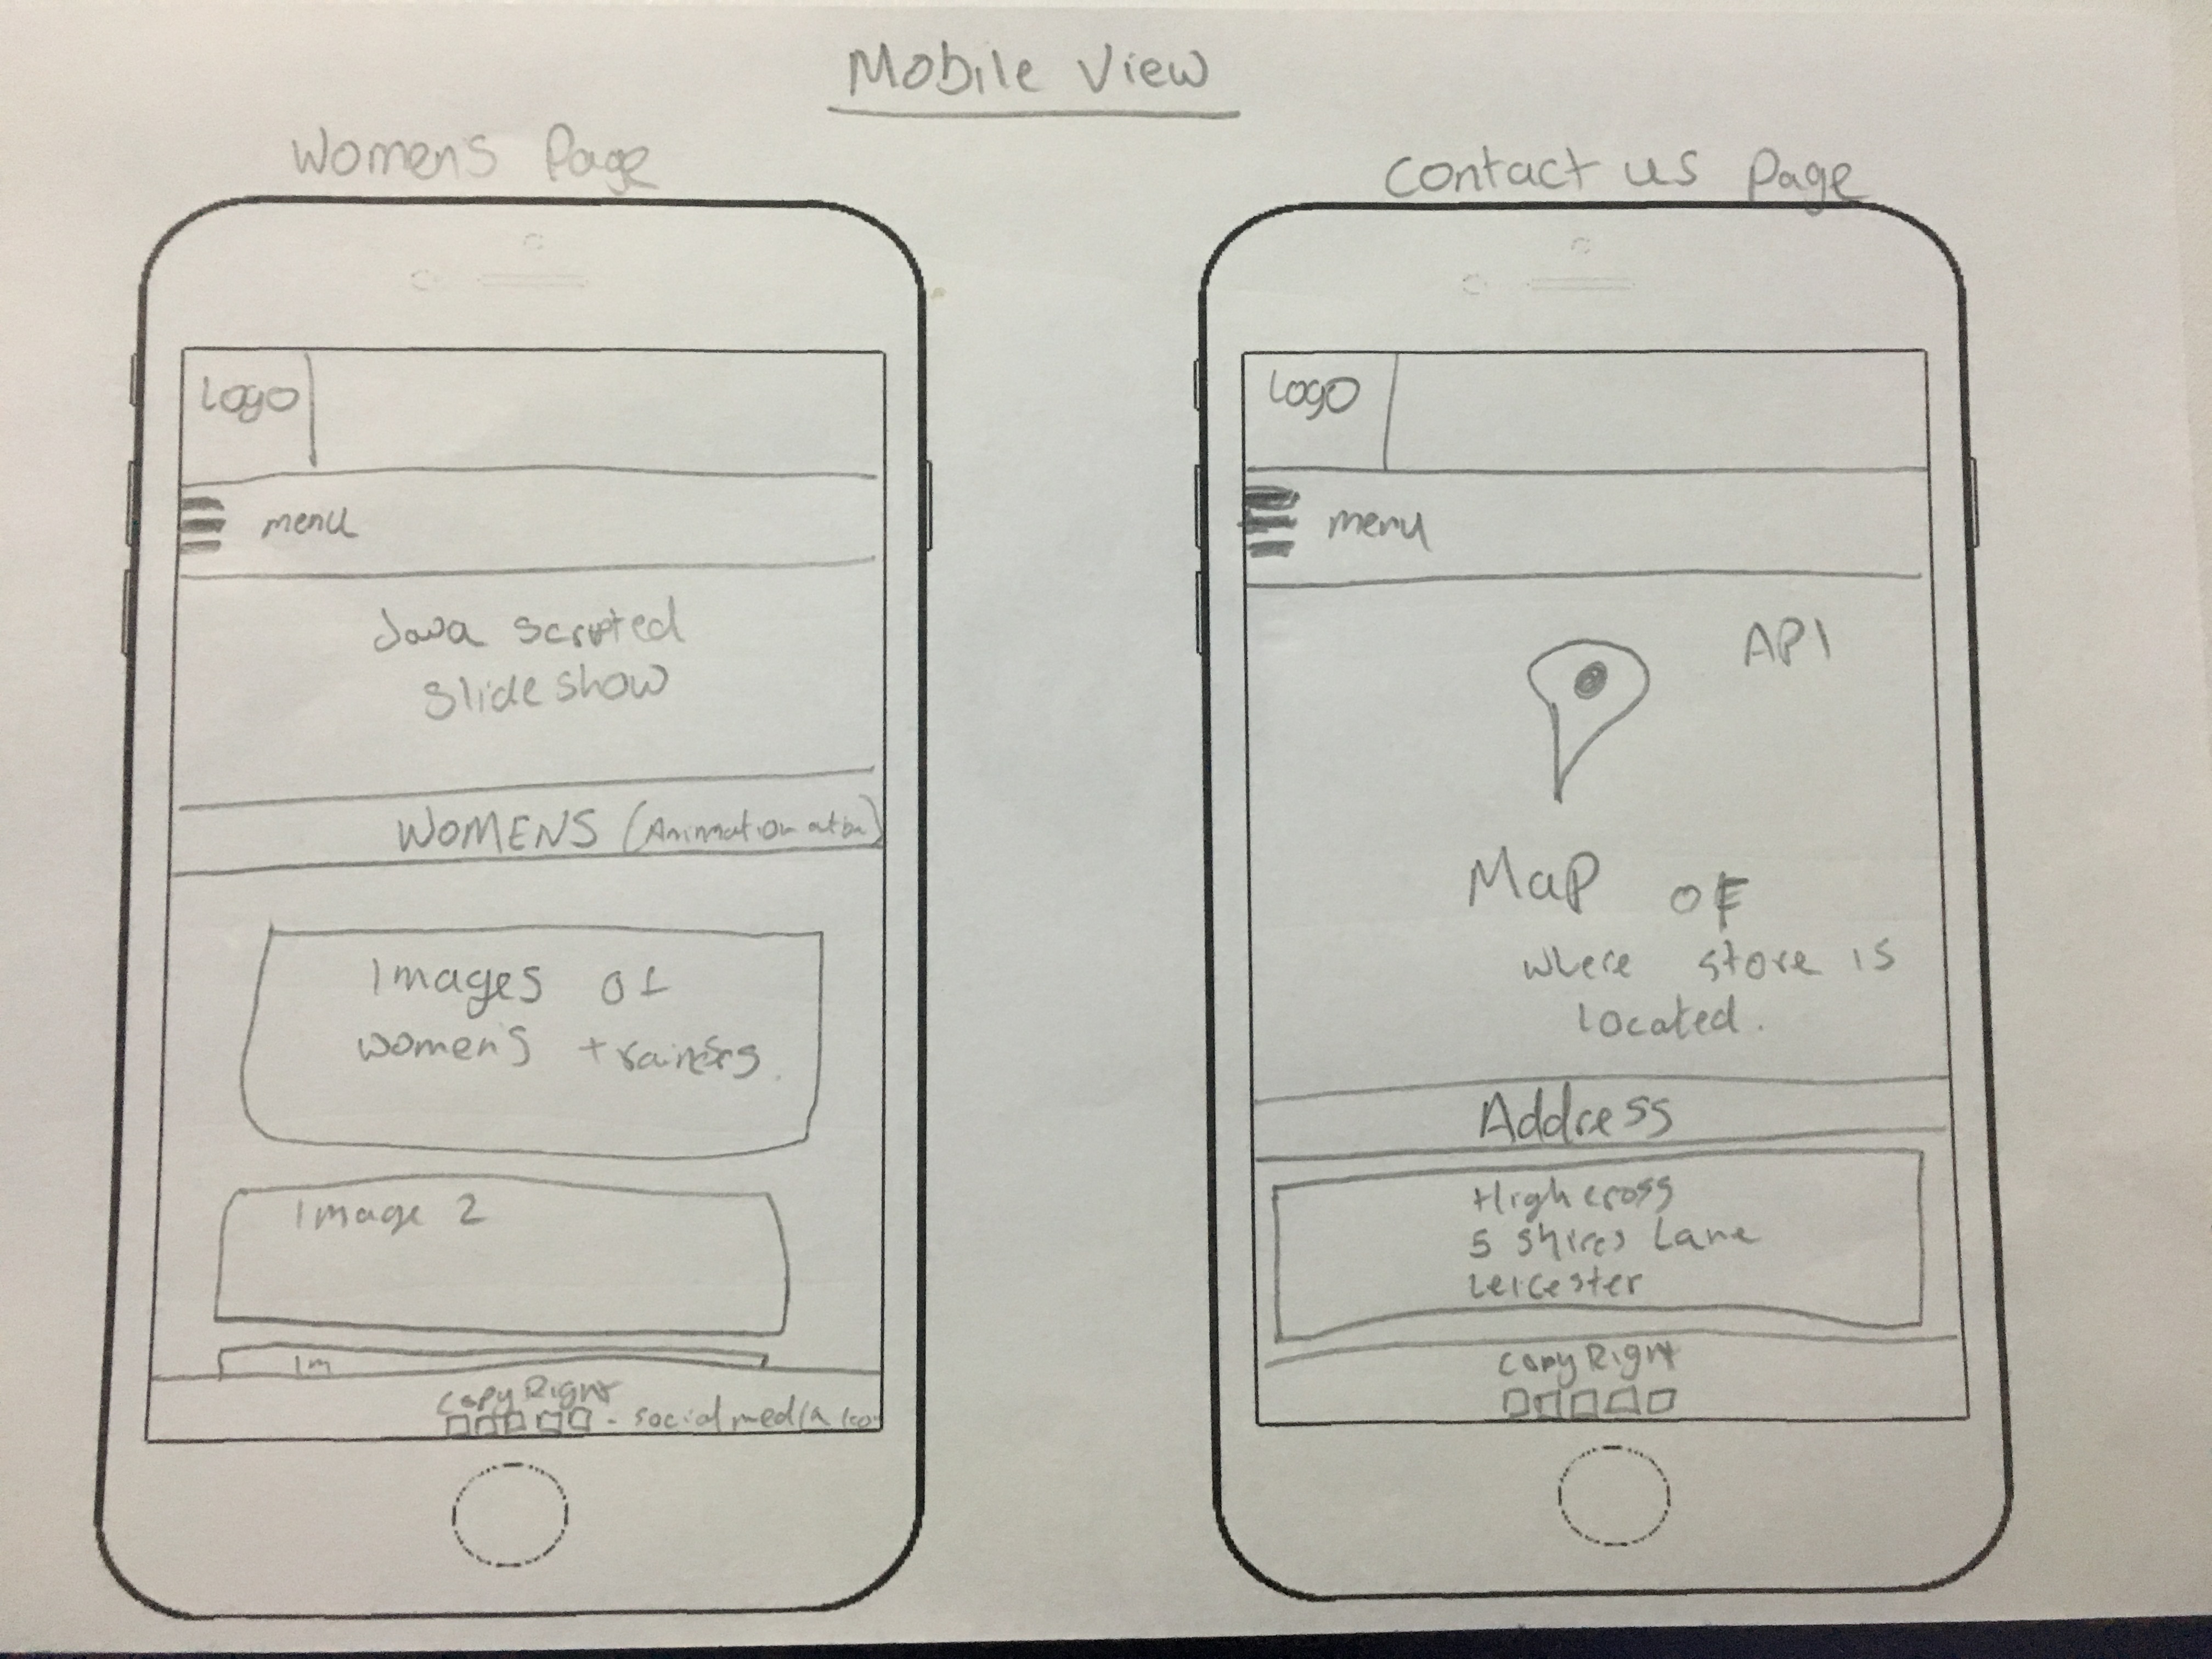 Mobile View
Womens Page
Logo
menu
Java scripted
slide show
WOMENS (Animation
Images of
womens trainers.
Image 2
Im
Copy Right
- social media
Contact us Page
Logo
menu
API
Map of
where store is
located.
Address
High cross
5 shires Lane
Leicester
Copy Right